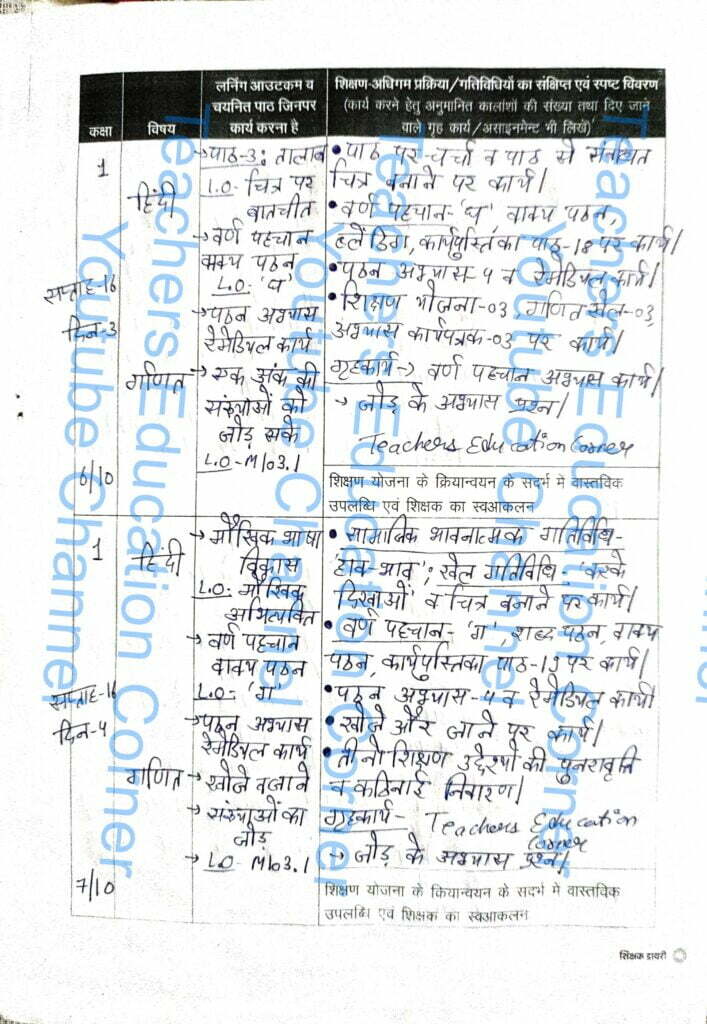 कक्षा
विषय
लर्निंग आउटकम व
चयनित पाठ जिनपर
कार्य करना है
शिक्षण-अधिगम प्रक्रिया/गतिविधियों का संक्षिप्त एवं स्पष्ट विवरण
(कार्य करने हेतु अनुमानित कालांशों की संख्या तथा दिए जाने
वाले गृह कार्य/असाइनमेन्ट भी लिखें)
1
सप्ताह-16
दिन-3
6/10
हिंदी
गणित
→ पाठ-3: तालाब
L.O- चित्र पर
बातचीत
→ वर्ण पहचान
वाक्य पठन
L.O- 'घ'
→ पठन अभ्यास
रेमेडियल कार्य
→ एक अंक की
संख्याओं को
जोड़ सके
L.O-M103.1
• पाठ पर चर्चा व पाठ से संबंधित
चित्र बनाने पर कार्य।
• वर्ण पहचान-'घ', वाक्य पठन,
ब्लेंडिंग, कार्यपुस्तिका पाठ-18 पर कार्य।
• पठन अभ्यास-4 व रेमेडियल कार्य।
• शिक्षण योजना-03, गणित खेल-03,
अभ्यास कार्यपत्रक-03 पर कार्य।
गृहकार्य-> वर्ण पहचान अभ्यास कार्य।
→ जोड़ के अभ्यास प्रश्न।
Teachers Education Corner
शिक्षण योजना के क्रियान्वयन के सदर्भ मे वास्तविक
उपलब्धि एवं शिक्षक का स्वआकलन
1
सप्ताह-16
दिन-4
7/10
हिंदी
गणित
→ मौखिक भाषा
विकास
L.O- मौखिक
अभिव्यक्ति
→ वर्ण पहचान
वाक्य पठन
L.O- 'ग'
→ पठन अभ्यास
रेमेडियल कार्य
→ खोजे व जाने
→ संख्याओं का
जोड़
→ L.O- M103.1
• सामाजिक भावनात्मक गतिविधि-
'हाव-भाव'; खेल गतिविधि- 'करके
दिखाओ' व चित्र बनाने पर कार्य।
• वर्ण पहचान- 'ग', शब्द पठन, वाक्य
पठन, कार्यपुस्तिका पाठ-19 पर कार्य।
• पठन अभ्यास-4 व रेमेडियल कार्य।
• खोजे और जाने पर कार्य।
• तीनो शिक्षण उद्देश्यो की पुनरावृति
व कठिनाई निवारण।
गृहकार्य- Teachers Education
Corner
→ जोड़ के अभ्यास प्रश्न।
शिक्षण योजना के कियान्वयन के सदर्भ मे वास्तविक
उपलब्धि एवं शिक्षक का स्वआकलन
शिक्षक डायरी
Teachers Education Corner
Youtube Channel
Teachers Education Corner
Youtube Channel